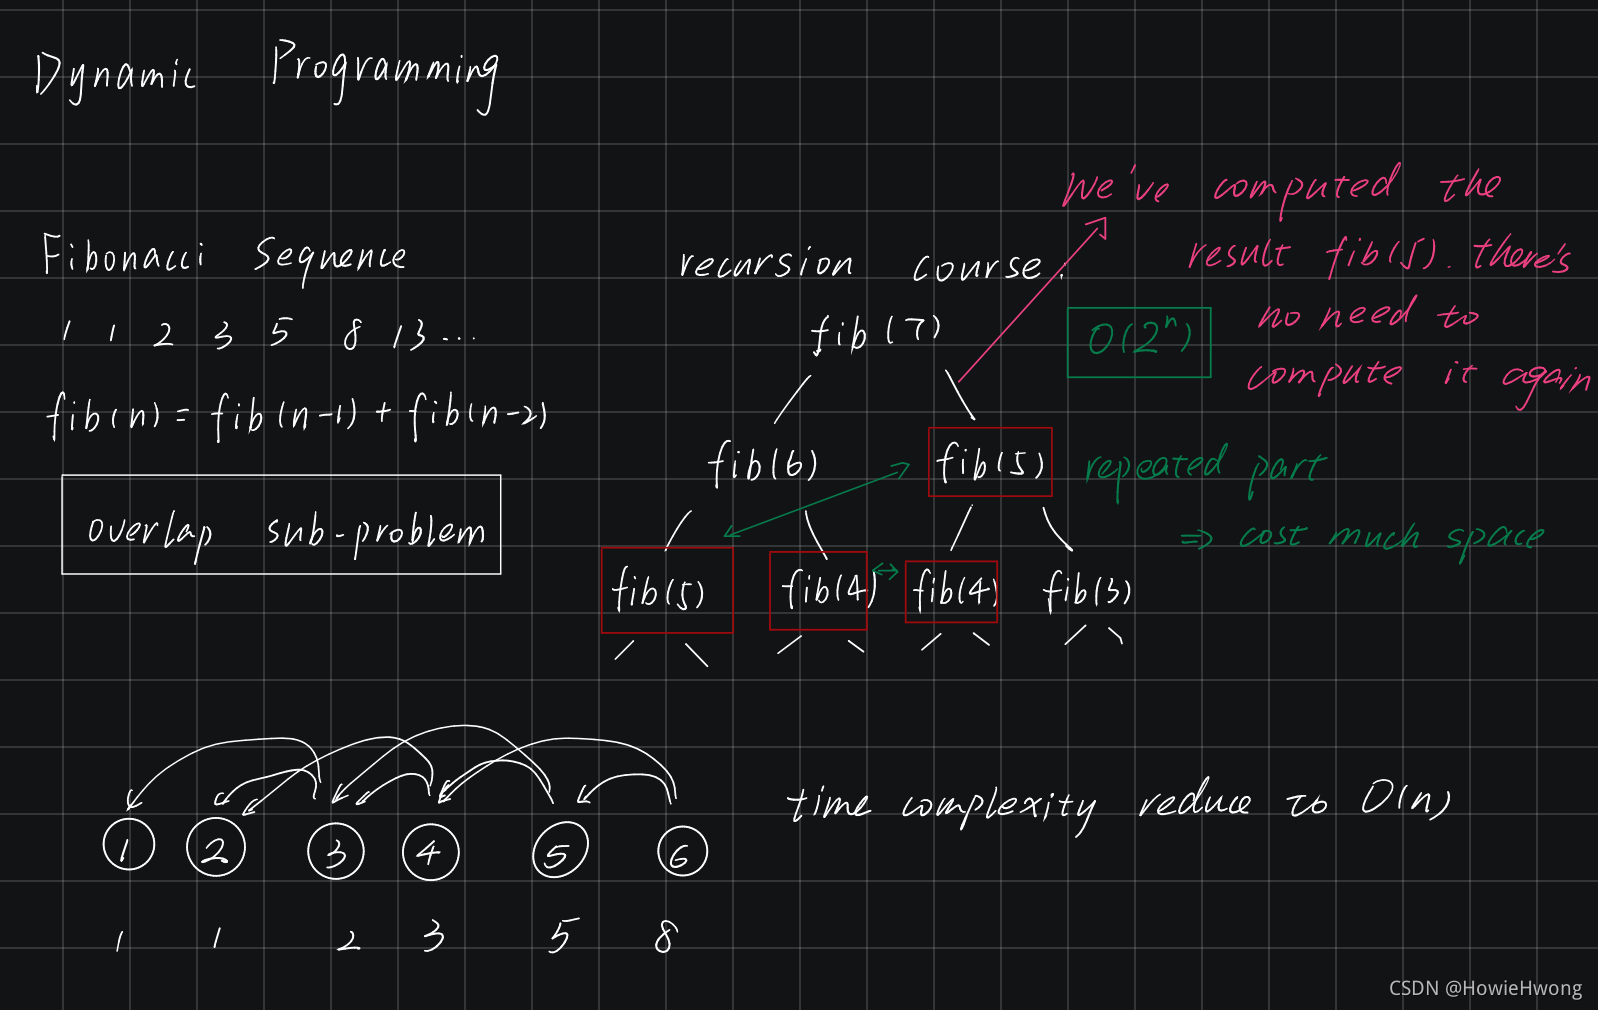 Dynamic Programming
Fibonacci Sequence
1 1 2 3 5 8 13 ...
fib(n) = fib(n-1) + fib(n-2)
overlap sub-problem
recursion course.
fib(7)
fib(6) fib(5)
fib(5) fib(4) fib(4) fib(3)
O(2^n)
We've computed the
result fib(5). there's
no need to
compute it again
repeated part
⇒ cost much space
1 2 3 4 5 6
1 1 2 3 5 8
time complexity reduce to O(n)
CSDN @HowieHwong